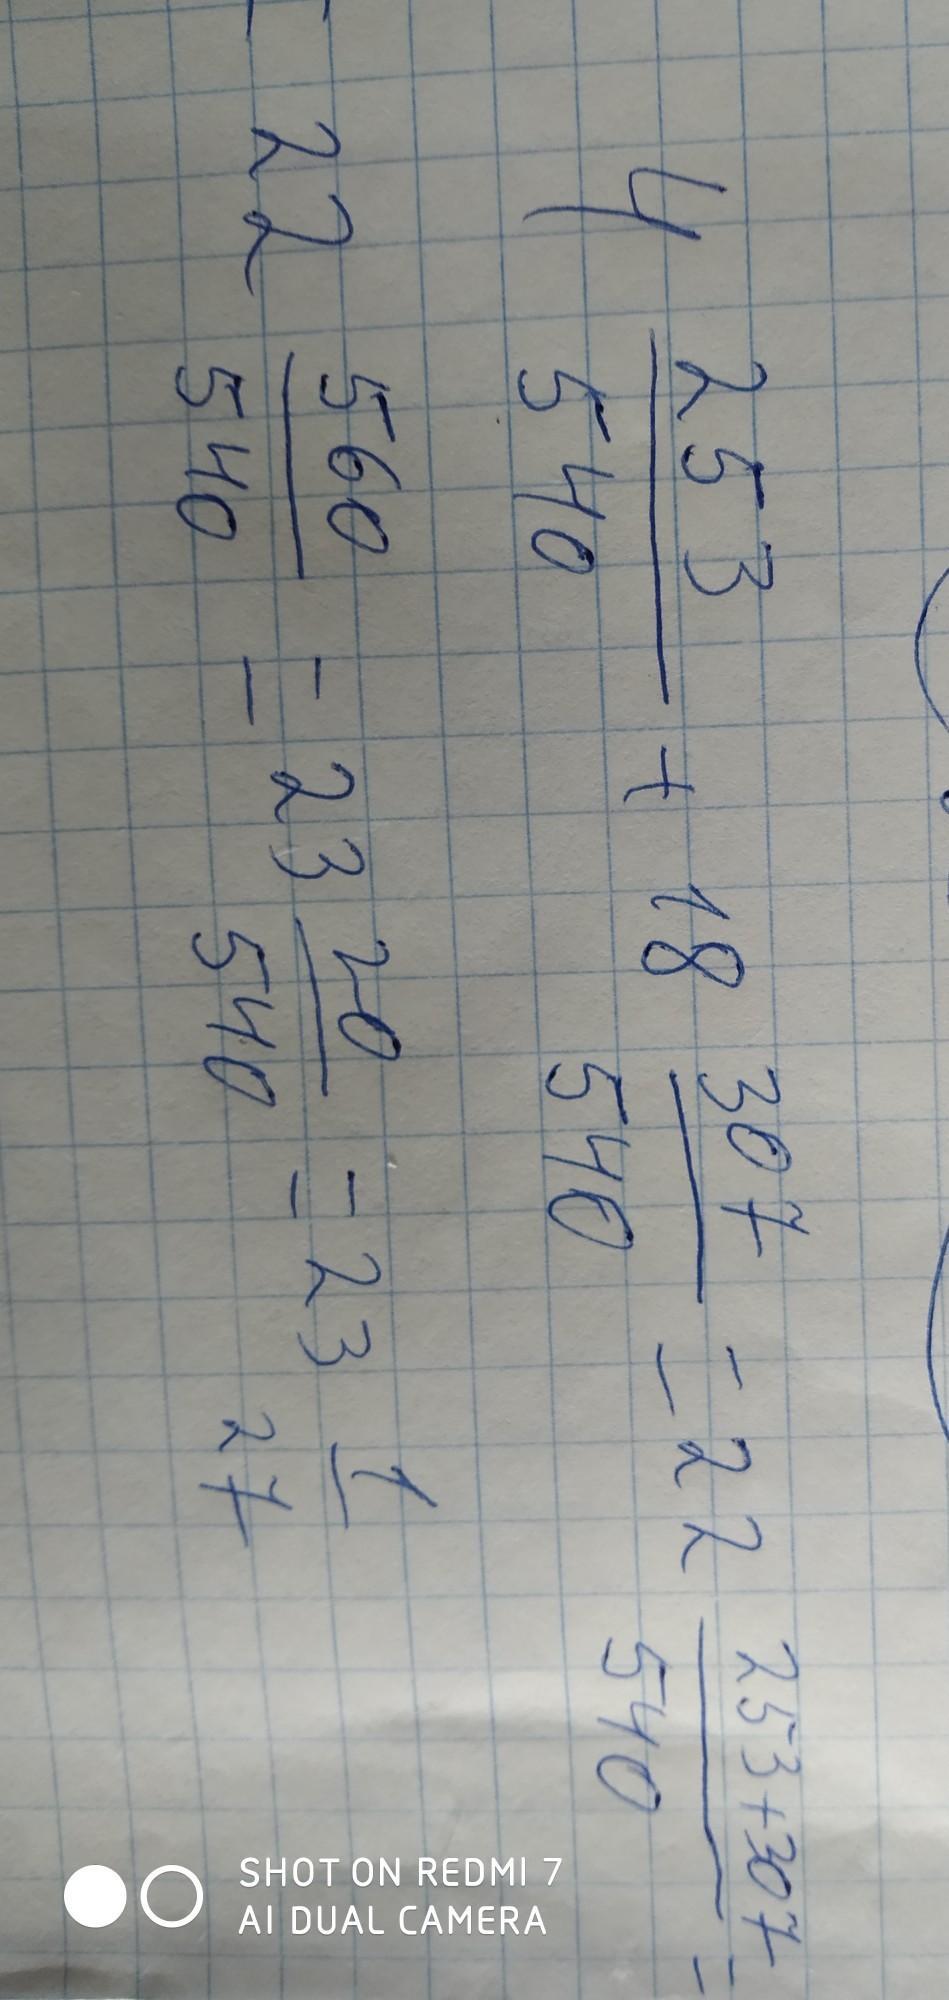 4 253/540 + 18 307/540 = 22 253+307/540 =
= 22 560/540 = 23 20/540 = 23 1/27
SHOT ON REDMI 7
AI DUAL CAMERA